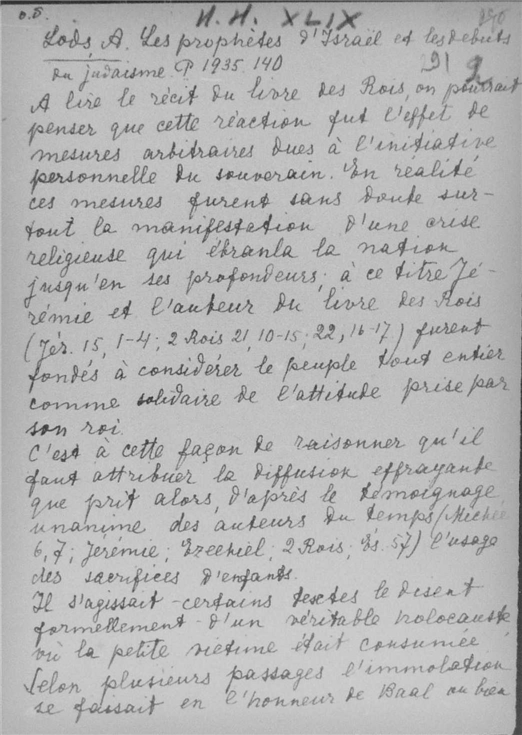 o.s. H.H. XLIX 240
Lods, A. Les prophètes d'Israël et les débuts
du judaisme. P 1935. 140
91 2
A lire le récit du livre des Rois, on pourrait
penser que cette réaction fut l'effet de
mesures arbitraires dues à l'initiative
personnelle du souverain. En réalité
ces mesures furent sans doute sur-
tout la manifestation d'une crise
religieuse qui ébranla la nation
jusqu'en ses profondeurs; à ce titre Jé-
rémie et l'auteur du livre des Rois
(Jér. 15, 1-4; 2 Rois 21, 10-15; 22, 16-17) furent
fondés à considérer le peuple tout entier
comme solidaire de l'attitude prise par
son roi.
C'est à cette façon de raisonner qu'il
faut attribuer la diffusion effrayante
que prit alors, d'après le témoignage
unanime des auteurs du temps (Michée
6, 7; Jérémie; Ezechiel; 2 Rois; Es. 57) l'usage
des sacrifices d'enfants.
Il s'agissait - certains textes le disent
formellement - d'un véritable holocauste
où la petite victime était consumée.
Selon plusieurs passages l'immolation
se faisait en l'honneur de Baal ou bien